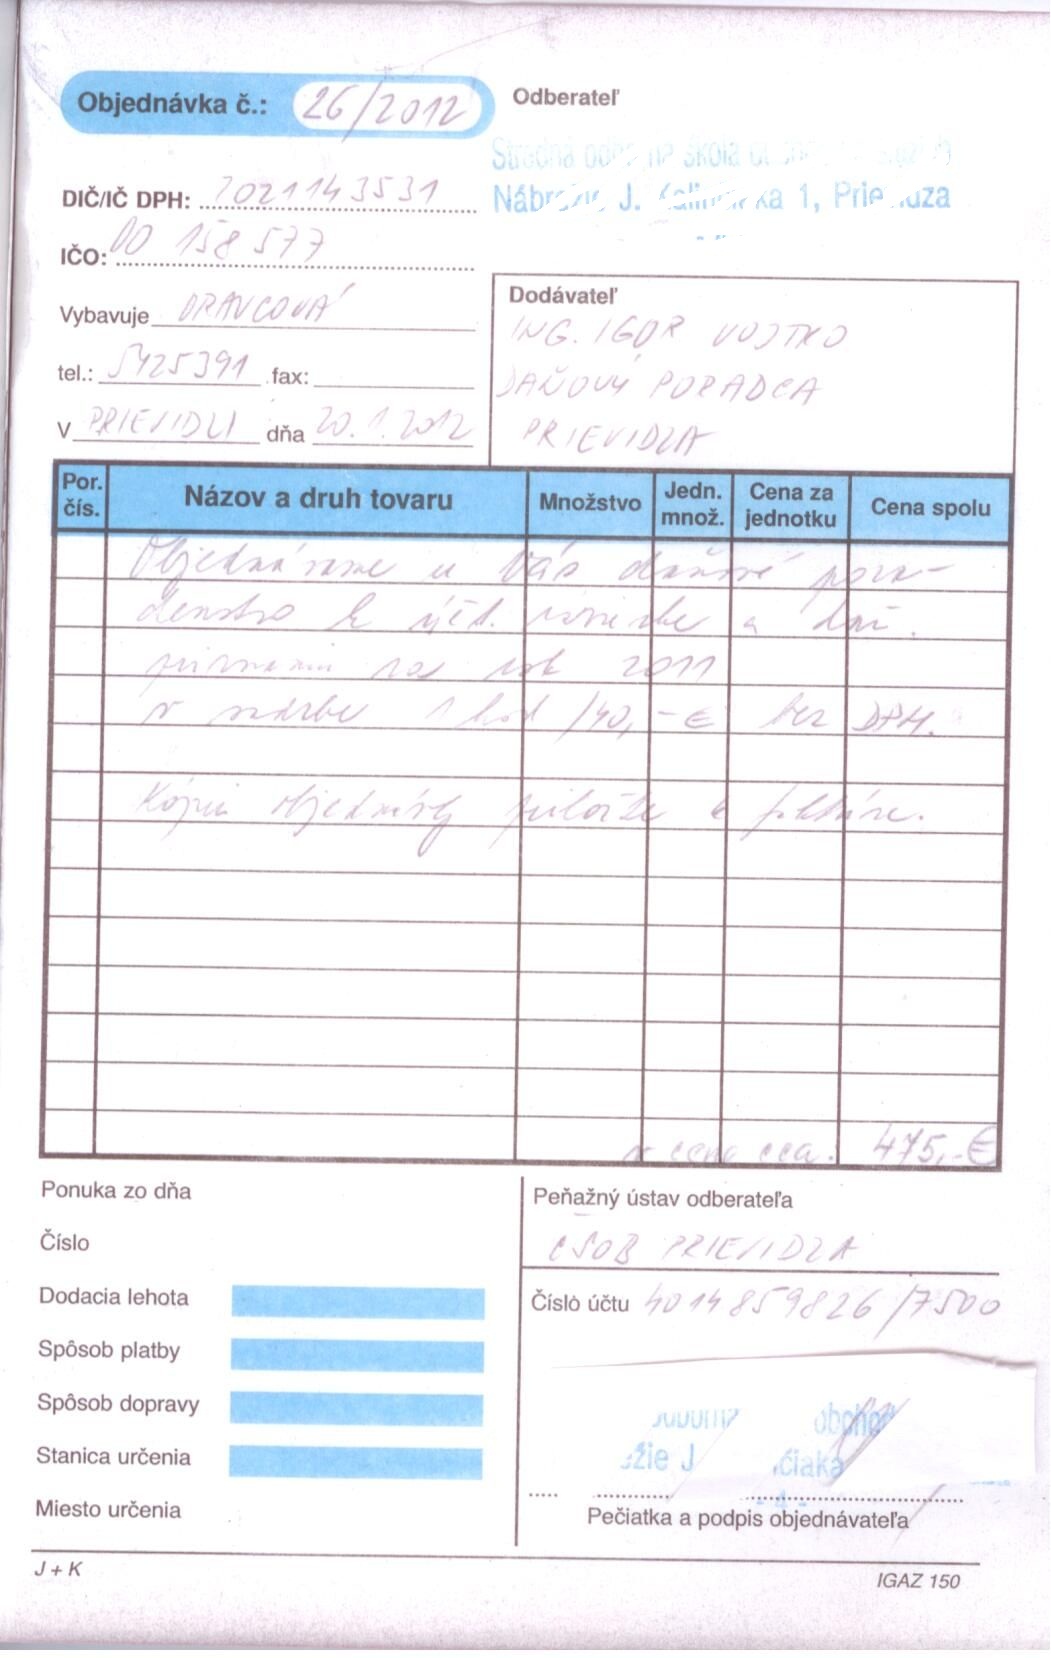 Objednávka č.: 26/2012
Odberateľ
Stredná škola
Nábrežie J. Kalinčiaka 1, Prievidza
DIČ/IČ DPH: 2021143531
IČO: 00 158 577
Vybavuje ORAVCOVÁ
tel.: 5425391 fax:
V PRIEVIDZI dňa 20.1.2012
Dodávateľ
ING. IGOR VOJTKO
DAŇOVÝ PORADCA
PRIEVIDZA
Por. čís. Názov a druh tovaru Množstvo Jedn. množ. Cena za jednotku Cena spolu
Objednávame u Vás daňové pora-
denstvo k účt. závierke a daň.
priznaniu za rok 2011
v sadzbe 1 hod /40,-€ bez DPH.
Kópiu objednávky priložte k faktúre.
v cene cca. 475,-€
Ponuka zo dňa
Číslo
Dodacia lehota
Spôsob platby
Spôsob dopravy
Stanica určenia
Miesto určenia
Peňažný ústav odberateľa
ČSOB PRIEVIDZA
Číslo účtu 4014859826/7500
Pečiatka a podpis objednávateľa
J + K
IGAZ 150